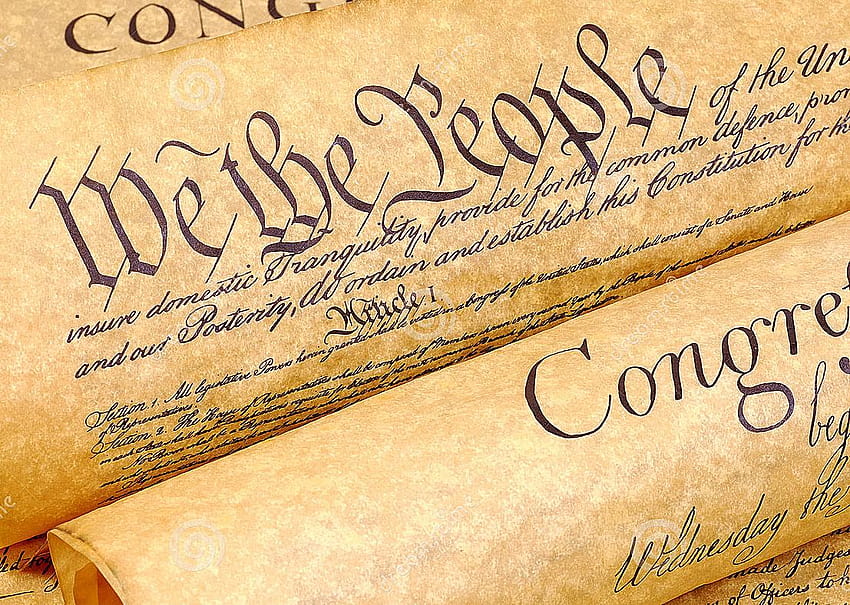 CONG
We the People of the Un
insure domestic Tranquility, provide for the common defence, pro
and our Posterity, do ordain and establish this Constitution for the
Article I
Section 1. All legislative Powers herein granted shall be vested in a Congress of the United States, which shall consist of a Senate and House
of Representatives.
Section 2. The House of Representatives shall be composed of Members chosen every second Year by the People of the several States
Congre
beg
Wednesday the
made Judges
of Officers to h